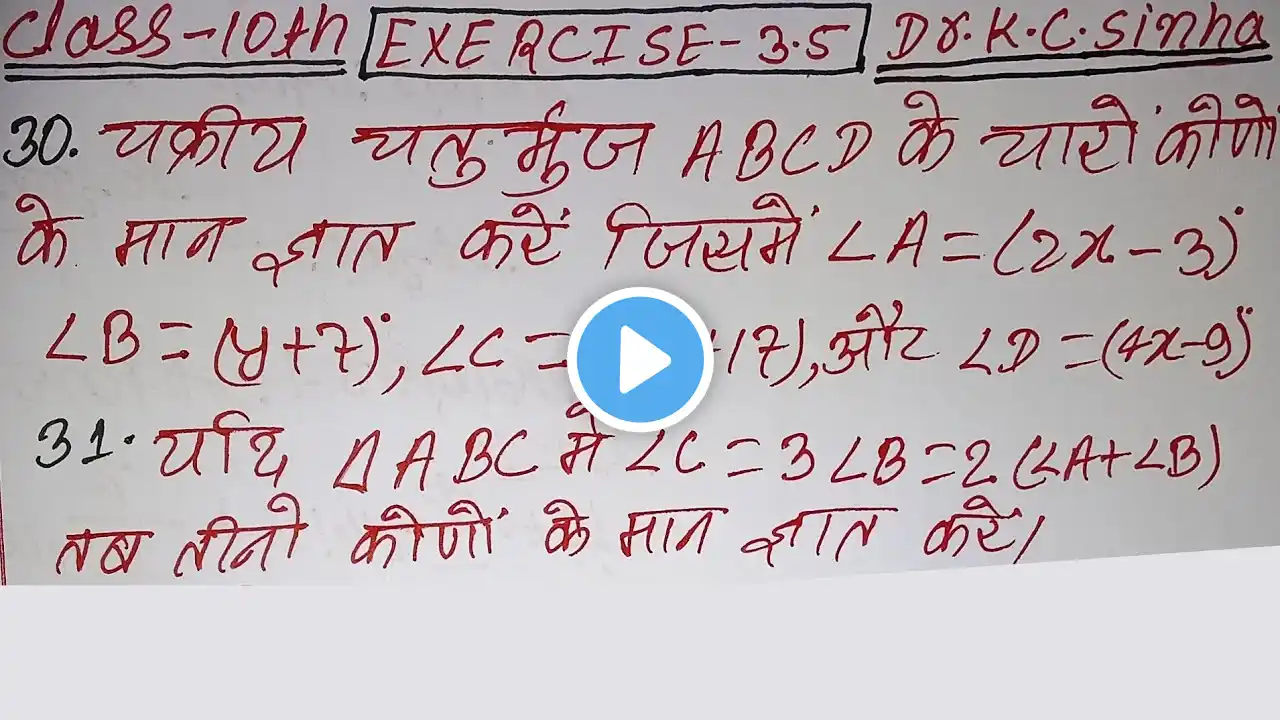 Class-10th EXERCISE-3.5 Dr.K.C.Sinha
30. चक्रीय चतुर्भुज ABCD के चारों कोणों
के मान ज्ञात करें जिसमें ∠A=(2x-3)°
∠B=(y+7)°, ∠C= +17), और ∠D=(4x-9)°
31. यदि ΔABC में ∠C=3∠B=2(∠A+∠B)
तब तीनो कोणों के मान ज्ञात करें।